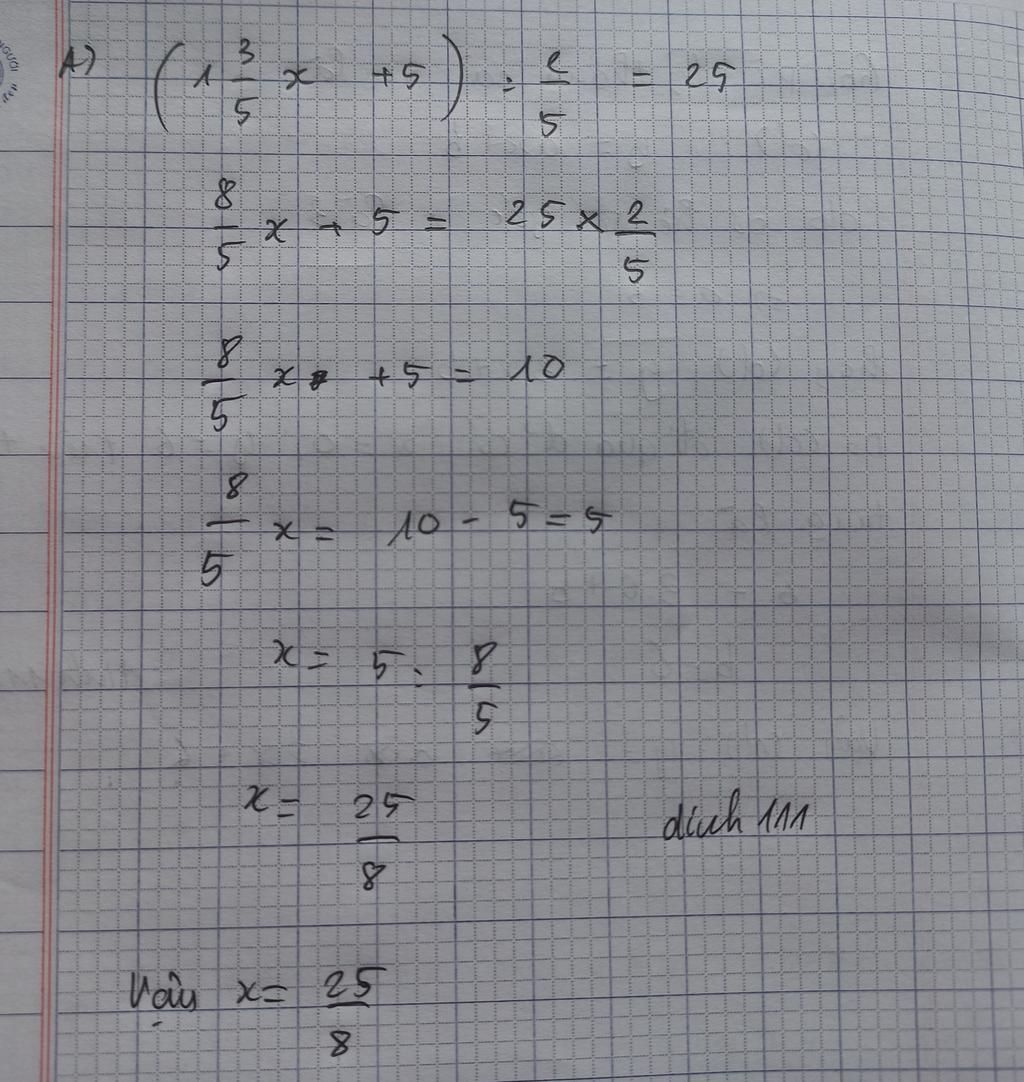 A) (1 3/5 x + 5) : 2/5 = 25
8/5 x + 5 = 25 × 2/5
8/5 x + 5 = 10
8/5 x = 10 - 5 = 5
x = 5 : 8/5
x = 25/8
dinh 111
Vậy x = 25/8